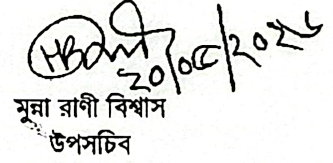 ২০/০৫/২০২৬
মুন্না রাণী বিশ্বাস
উপসচিব